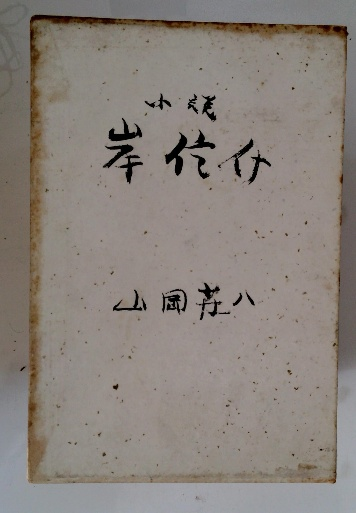 小説
岸信介
山岡荘八